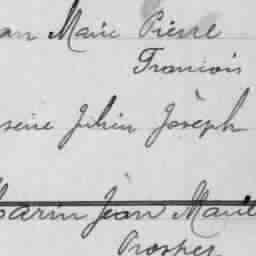 an Marie Pierre
Francois
Julien Joseph
Jean Marie
Prosper